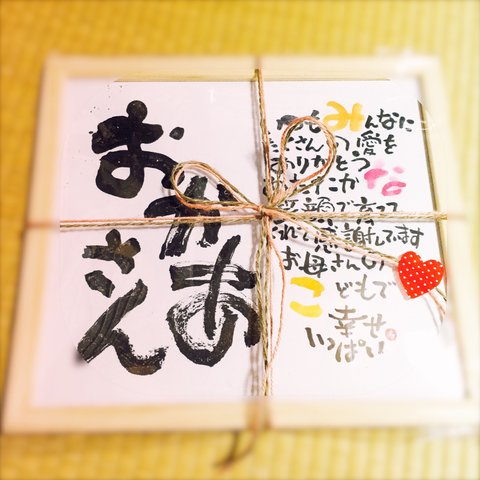 おかあさん
いつもみんなに
たくさんの愛を
ありがとう
な
笑顔で育って
くれて感謝してます
お母さんの
こどもで
幸せ
いっぱい